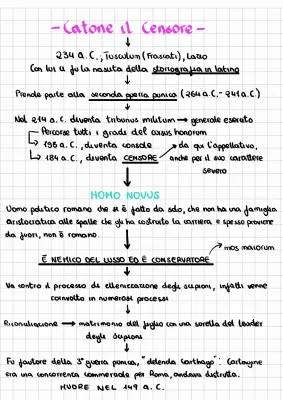 - Catone il Censore -
234 a.C., Tusculum (Frascati), Lazio
Con lui si fa la nascita della storiografia in latino
Prende parte alla seconda guerra punica (264 a.C.- 241 a.C.)
Nel 214 a.C. diventa tribunus militum → generale esercito
Percorse tutti i gradi del cursus honorum
195 a.C., diventa console → da qui l'appellativo,
184 a.C., diventa CENSORE anche per il suo carattere
severo
HOMO NOVUS
Uomo politico romano che si è fatto da solo, che non ha una famiglia
aristocratica alle spalle che gli ha costruito la carriera e spesso proviene
da fuori, non è romano.
mos maiorum
È NEMICO DEL LUSSO ED È CONSERVATORE
Va contro il processo di ellenizzazione degli scipioni, infatti venne
coinvolto in numerosi processi
Riconciliazione → matrimonio del figlio con una sorella del leader
degli Scipioni
Fu fautore della 3° guerra punica, "delenda Carthago": Cartagine
era una concorrenza commerciale per Roma, andava distrutta.
MUORE NEL 149 a.C.